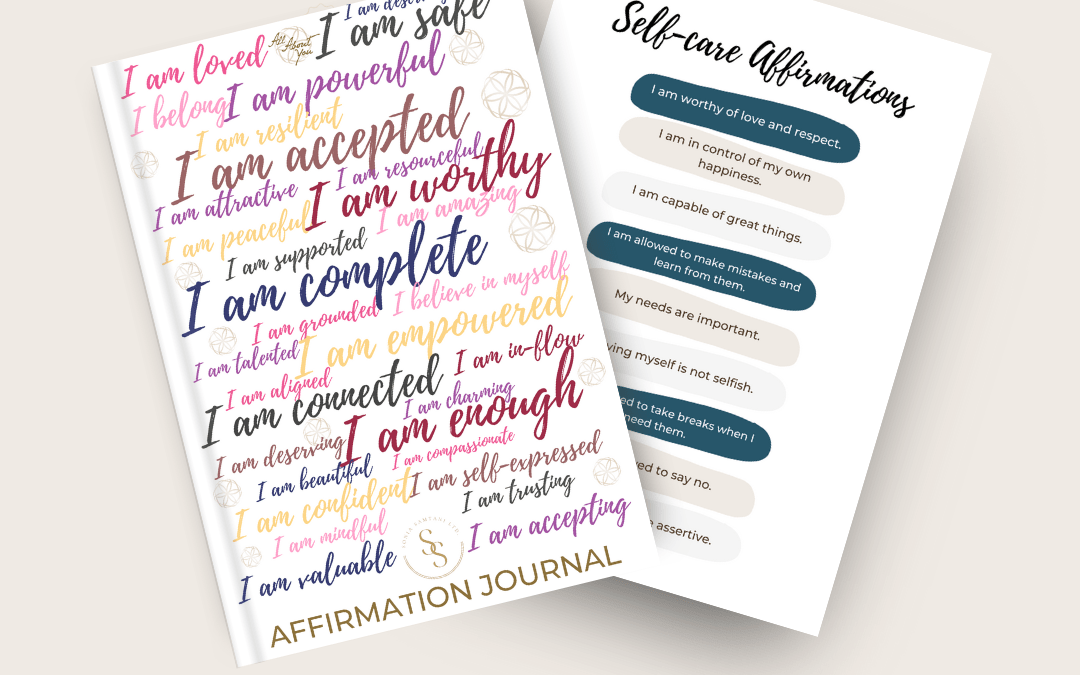 I am deserving
I am safe
I am loved
All
About
You
I belong
I am powerful
I am resilient
I am accepted
I am resourceful
I am attractive
I am worthy
I am peaceful
I am amazing
I am supported
I am complete
I believe in myself
I am grounded
I am empowered
I am talented
I am in-flow
I am aligned
I am connected
I am charming
I am enough
I am deserving
I am compassionate
I am beautiful
I am self-expressed
I am confident
I am trusting
I am mindful
I am accepting
I am valuable
SS
AFFIRMATION JOURNAL
Self-care Affirmations
I am worthy of love and respect.
I am in control of my own
happiness.
I am capable of great things.
I am allowed to make mistakes and
learn from them.
My needs are important.
ving myself is not selfish.
ed to take breaks when I
need them.
ved to say no.
e assertive.